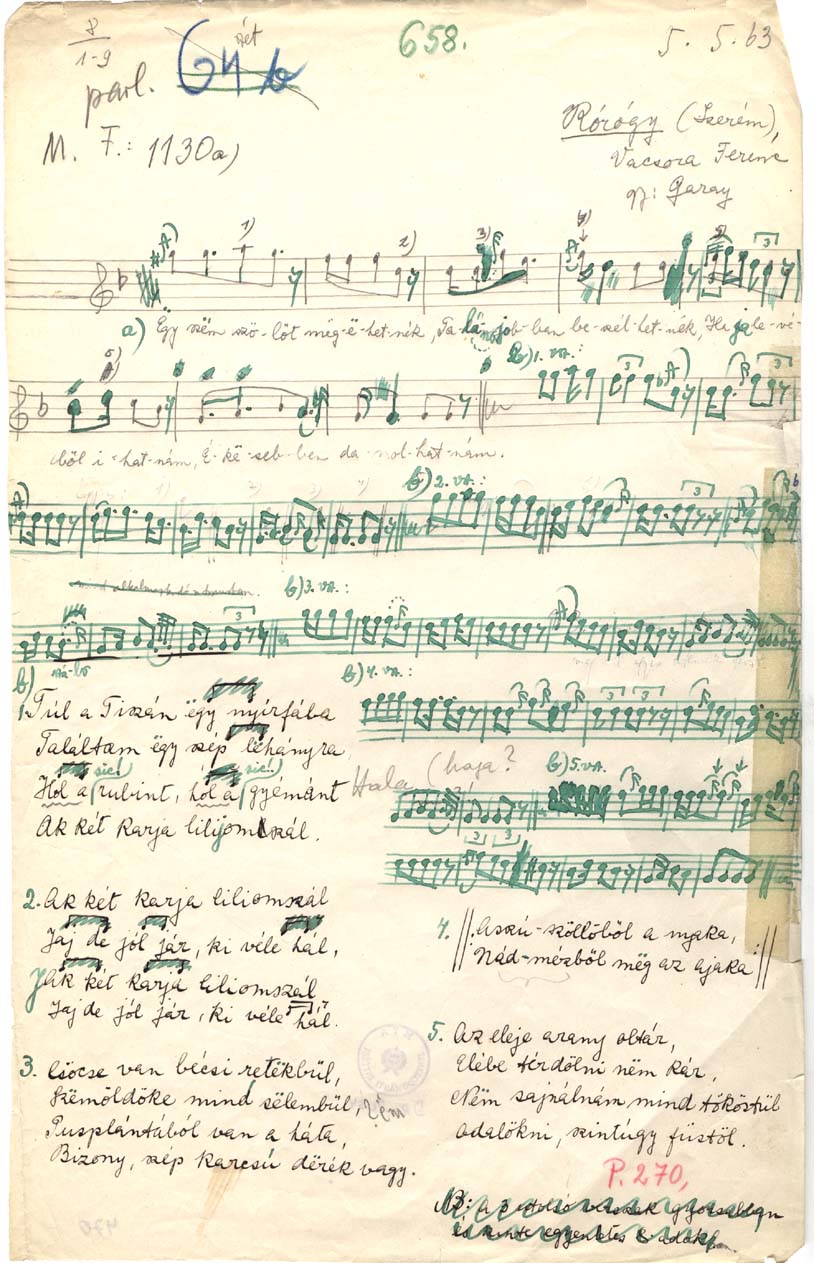 8
1-9
parl.
64 b
658.
5. 5. 63
M. F.: 1130a)
Rórógy (Szerém),
Vacsora Ferenc
gy: Garay
a) Ëgy szëm szö-lőt mëg-ë-het-nék, Ta-lám job-ban be-szél-het-nék, Ha ja le-vé-
ből i-hat-nám, É-kë-seb-ben da-nol-hat-nám.
b) 1. vsz.:
b) 2. vsz.:
b) 3. vsz.:
b) 4. vsz.:
b) 5. vsz.
b)
1. Túl a Tiszán ëgy nyírfába
Találtam ëgy szép lëhányra
Hol a (sic!) rubint, hol a (sic!) gyémánt
Hala (haja?
Ak két karja lilijomszál.
2. Ak két karja liliomszál
Jaj de jól jár, ki véle hál,
Ak két karja liliomszál
Jaj de jól jár, ki véle hál.
3. Csöcse van bécsi retëkbül,
Szëmöldöke mind sëlembül,
Pusplántából van a háta,
Bizony, szép karcsú dërék vagy.
4. Aszú-szöllőből a nyaka,
Nád-mézből még az ajaka
5. Az eleje arany oltár,
Elébe térdölni nëm kár,
Nëm sajnálnám mind tőköstül
Odalökni, szintúgy füstöl.
P. 270,
NB: a